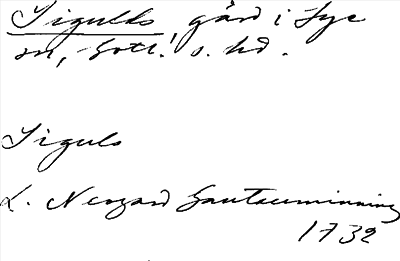 Sigulds gård i Lye
sn, Gotl. s. hd.
Siguls
L. Neogard Gautauminning
1732